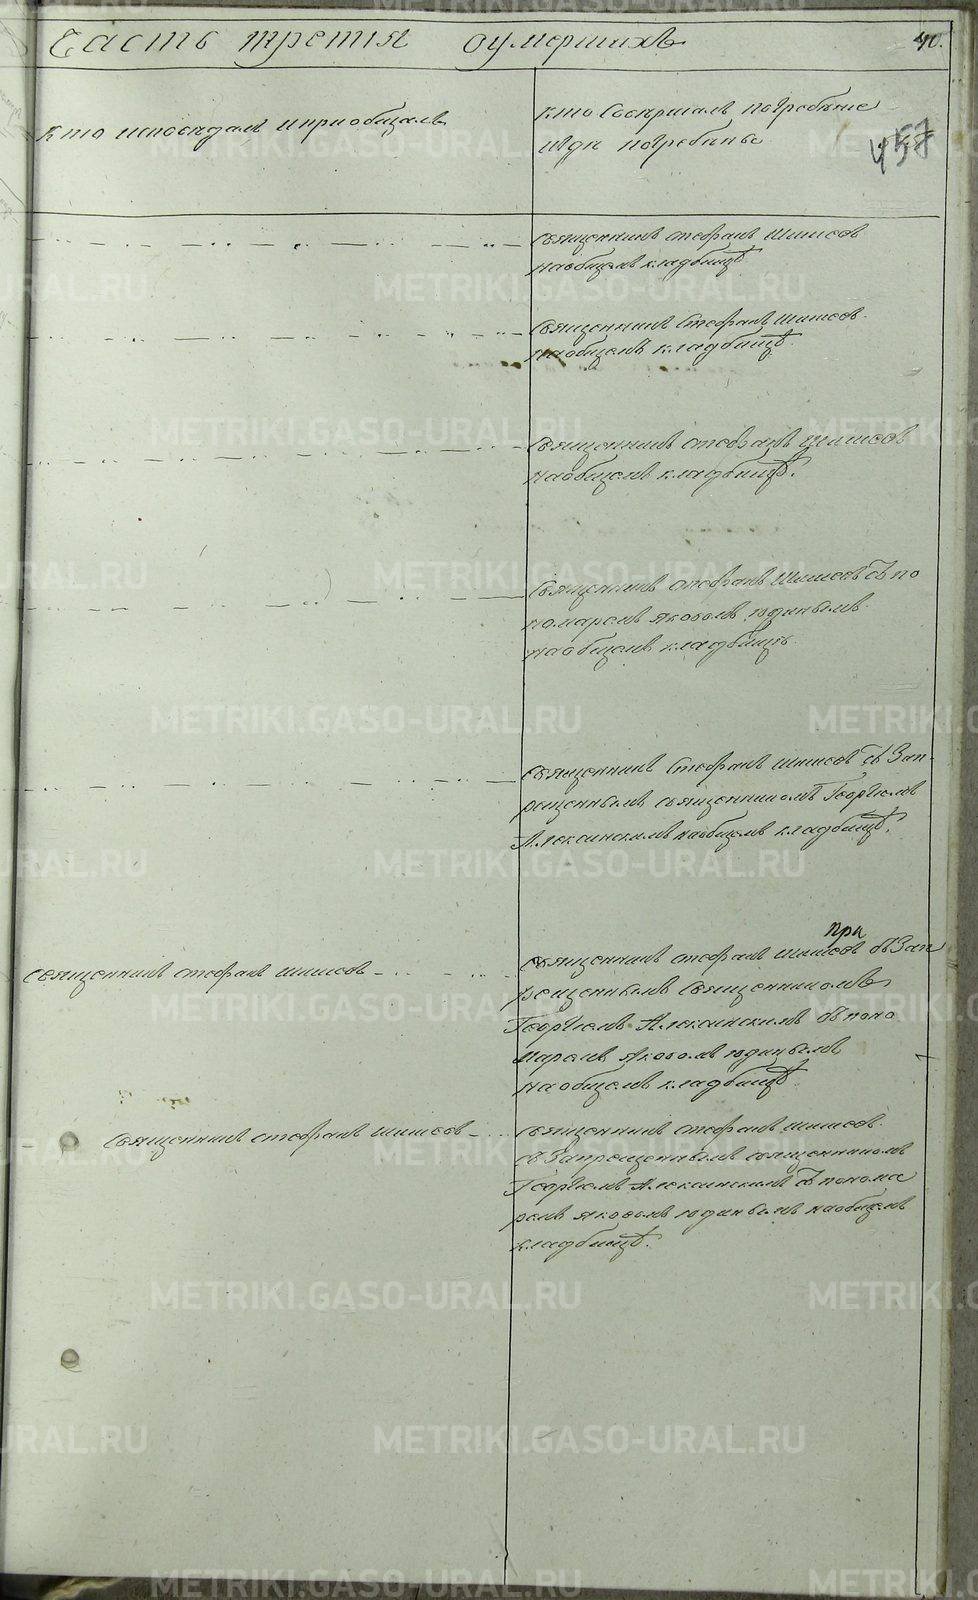 Часть третия оумершихъ
40.
Кто исповедалъ и приобщалъ
Кто Совершалъ погребение
и где погребены
457
Священникъ стефанъ Шишовъ
на общемъ кладбищѣ
Священникъ Стефанъ Шишовъ
на общемъ кладбищѣ.
Священникъ стефанъ Шишовъ
на общемъ кладбищѣ.
Священникъ стефанъ Шишовъ съ по
номаремъ яковомъ юдинымъ
на общемъ кладбищѣ.
Священникъ Стефанъ Шишовъ съ Зап
рещеннымъ священникомъ Георгиемъ
Алексинскимъ на общемъ кладбищѣ.
Священникъ стефанъ шишовъ
при
Священникъ стефанъ Шишовъ съ Зап
рещеннымъ Священникомъ
Георгиемъ Алексинскимъ съ поно
маремъ яковомъ юдинымъ
на общемъ кладбищѣ
Священникъ стефанъ шишовъ
священникъ стефанъ шишовъ
съ Запрещеннымъ священникомъ
Георгиемъ Алексинскимъ съ понома
ремъ яковомъ юдинымъ на общемъ
кладбищѣ.
METRIKI.GASO-URAL.RU